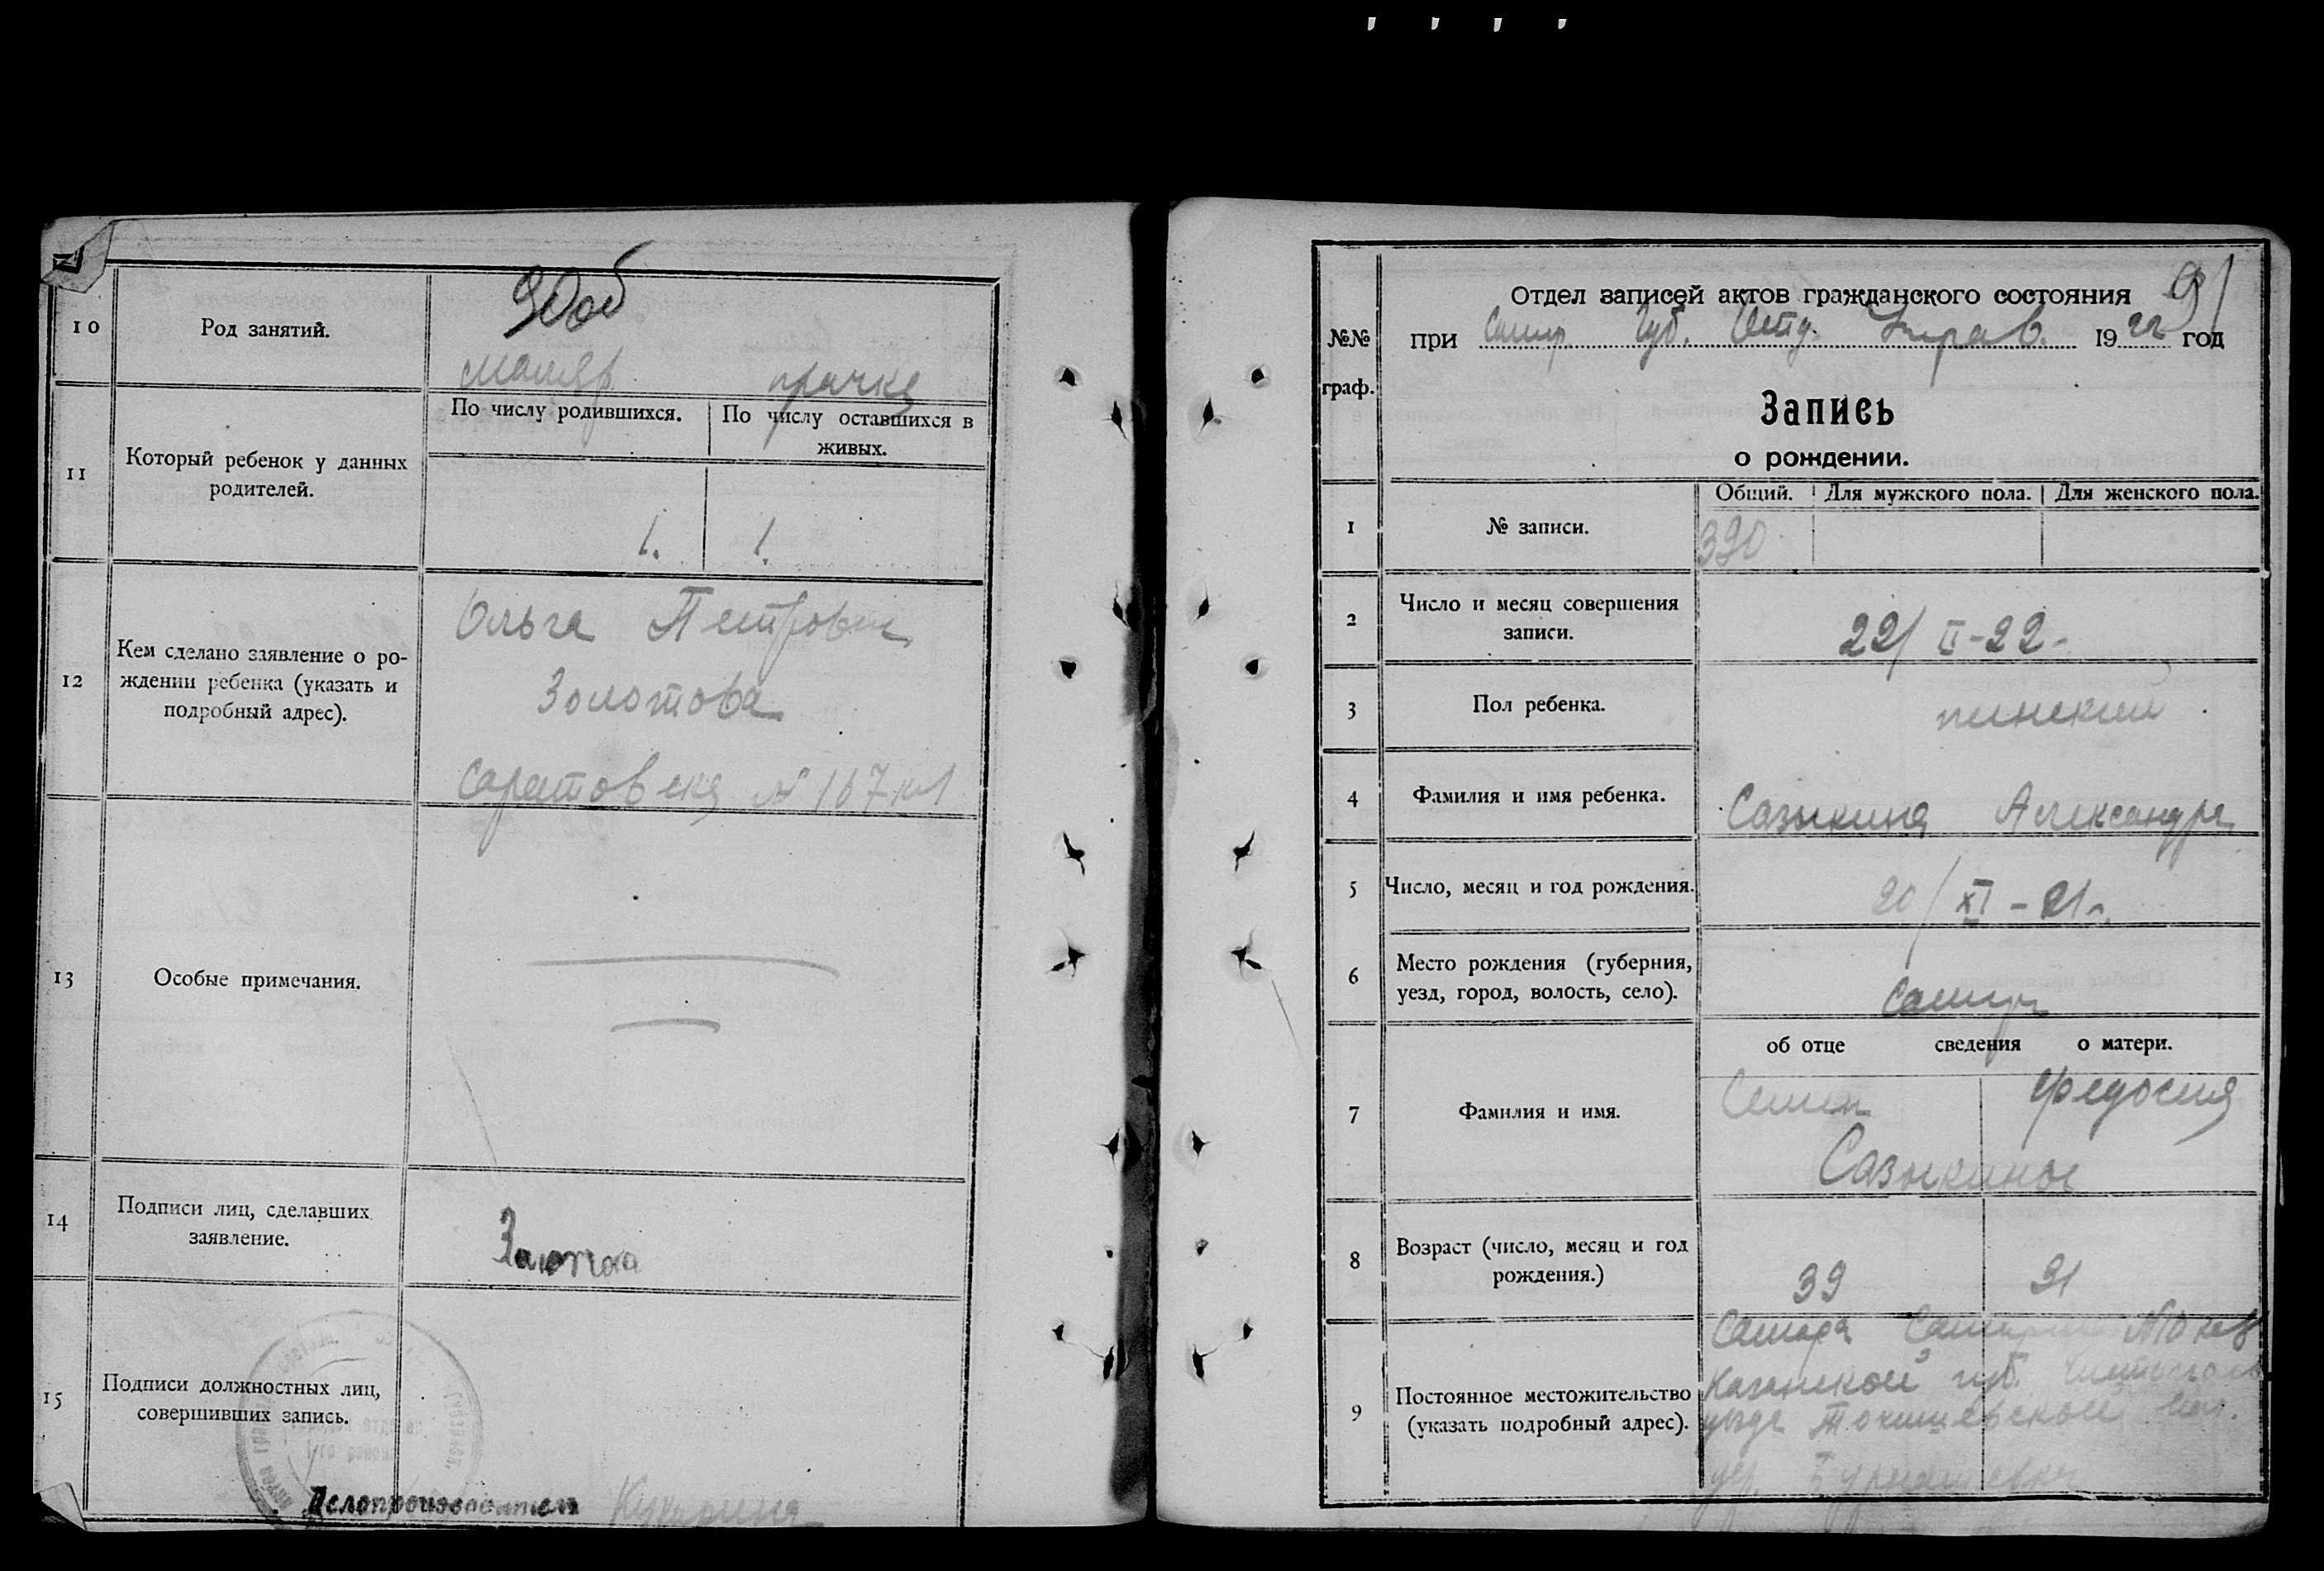 90об
10
Род занятий.
маляр прачка
11
Который ребенок у данных
родителей.
По числу родившихся.
По числу оставшихся в
живых.
1. 1.
12
Кем сделано заявление о ро-
ждении ребенка (указать и
подробный адрес).
Ольга Петровн
Золотова
Саратовская № 167 кв 1
13
Особые примечания.
14
Подписи лиц, сделавших
заявление.
15
Подписи должностных лиц,
совершивших запись.
Делопроизводитель
91
№№
граф.
Отдел записей актов гражданского состояния
при Самар. Губ. Отд. Управ. 1922 год
Запись
о рождении.
1
№ записи.
Общий.
Для мужского пола.
Для женского пола.
390
2
Число и месяц совершения
записи.
22/II-22
3
Пол ребенка.
4
Фамилия и имя ребенка.
Сазыкина Александра
5
Число, месяц и год рождения.
20/XI-21
6
Место рождения (губерния,
уезд, город, волость, село).
Самар
7
Фамилия и имя.
об отце сведения о матери.
Семен Федосия
Сазыкины
8
Возраст (число, месяц и год
рождения.)
39 31
9
Постоянное местожительство
(указать подробный адрес).
Самара №10 кв
Казанской губ.
уезда